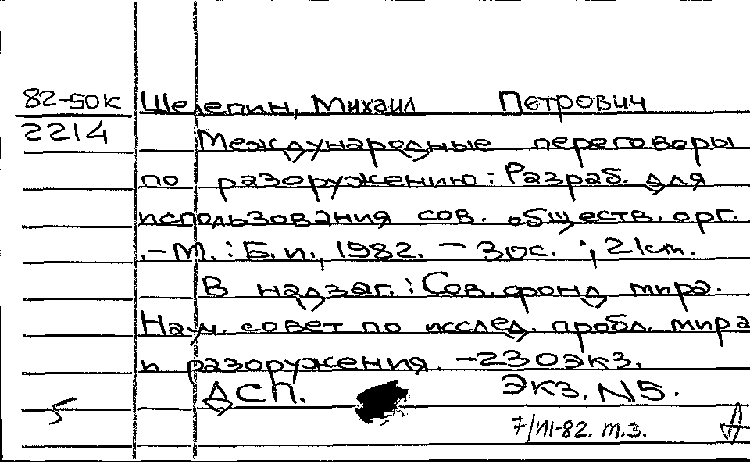 82-50к Шелепин, Михаил Петрович
2214 Международные переговоры
по разоружению: Разраб. для
использования сов. обществ. орг.
.-М.: Б.и., 1982. - 30с. ; 21см.
В надзаг.: Сов. фонд мира.
Науч. совет по исслед. пробл. мира
и разоружения. -230экз.
ДСП. Экз. N5.
5
7/VI-82. т.з.